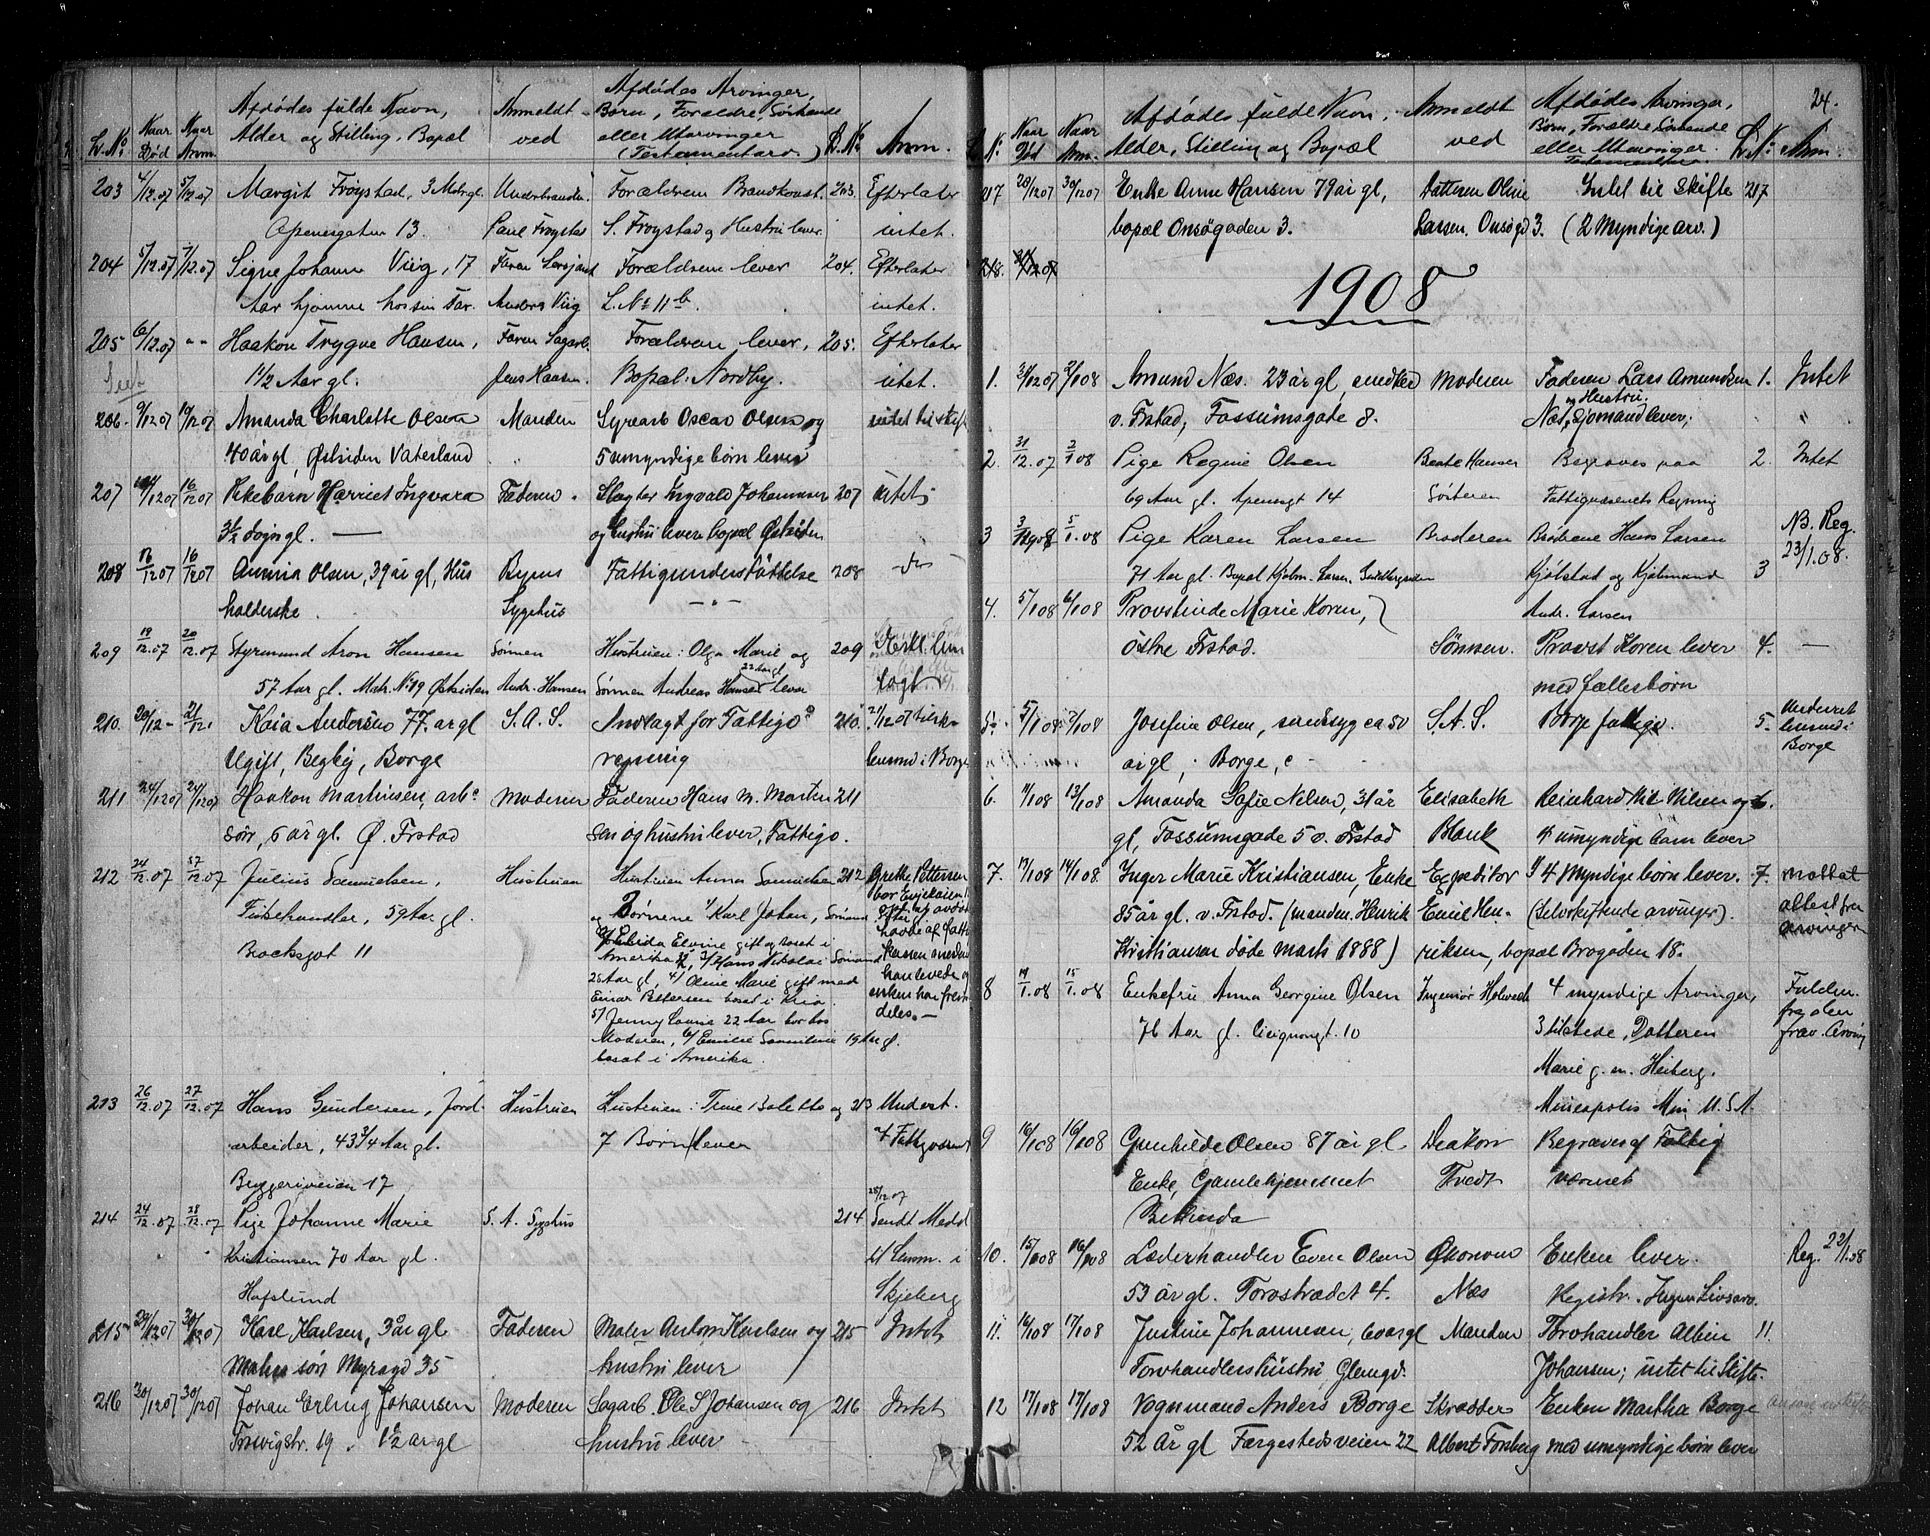 Afdødes fulde Navn, Alder og Stilling, Bopæl
Anmeldt ved
Afdødes Arvinger, Børn, Forældre, Søskende eller Utarvinger (Testamentarv.)
L. No. Naar Død Naar Anm. L. No. Anm.
203 4/12.07 5/12.07 Margit Frøystad, 3 Mdr gl. Forældrene Brandkonst. 203. Efterlater
Apenesgaten 13. Paul Frøystad S. Frøystad og Hustru lever intet.
204 5/12.07 7/12.07 Signe Johanne Viig, 17 Faren Forældrene lever 204. Efterlater
Aar hjemme hos sin Far. Anders Viig L. No 11 b intet.
205 6/12.07 "" Haakon Trygve Hansen, Faren Sagarb. Forældrene lever, 205. Efterlater
1 1/2 Aar gl. Jens Hansen. Bopæl: Nordby. intet.
206. 9/12 07 10/12 07 Amanda Charlotte Olsen Manden Oscar Olsen og intet til skift
40 år gl, Østsiden Vaterland 5 umyndige børn lever
207 14/12 07 16/12 07 Pikebarn Harriet Ingvara Faderen Slagter Ingvald Johannesen 207 intet
3 1/2 døgn gl. og hustru lever bopæl Østsiden
208 16/12 07 16/12 07 Olsen, 39 år gl, Hus Byens Fattigunderstøttelse 208 do
holderske Sygehus - " -
209 19/12.07 20/12.07 Styrmand Aron Hansen Sønnen Hustruen: Olga Marie og 209
57 Aar gl. Matr. No 19 Østsiden Andr. Hansen Sønnen Andreas Hansen 22 Aar gl lever
210. 20/12 - 21/12 Kaia Andersen 77 år gl S. A. S. Anlagt for Fattigv. 210.
Ugift, Begby, Borge regning lensmd i Borge
211 24/12 07 24/12 07 Haakon Martinsen, arb. Moderen Faderen Hans M. Martin 211
søn, 6 år gl. Ø. Frstad sen og hustru lever, Fattigv.
212 24/12.07 27/12.07 Julius Samuelsen, Hustruen Hustruen Anna Samuelsen 212 Grethe Pettersen
Fiskehandler, 59 Aar gl. og Børnene 1/ Karl Johan, Sømand
Brocksgt 11 2/ Elvine gift og bosat i
Amerika 3/ Hans Nikolai Sømand
25 Aar gl, 4/ Oline Marie gift med
Einar Pettersen bosat i Kria
5/ Jenny Lovise 22 Aar bor hos
Moderen, 6/ Emilie 19 Aar gl.
bosat i Amerika.
213 26/12.07 27/12.07 Hans Gundersen, Jord- Hustruen Hustruen: Trine Bolette og 213 Underst.
arbeider, 43 3/4 Aar gl. 7 Børn lever af Fattigvæsenet
Bryggeriveien 17
214 24/12.07 28/12.07 Pige Johanne Marie S. A. Sygehus 214 28/12 07 Sendt Medd
Kristiansen 70 Aar gl. til Lensm. i
Hafslund Skjeberg
215 29/12 07 30/12 07 Karl Karlsen, 3 år gl Faderen Maler Anton Karlsen og 215 Intet
Malers søn Myragd 35 hustru lever
216 30/12 07 30/12 07 Johan Erling Johansen Moderen Sagarb. Ole S Johansen og 216 Intet
Trosvigstr. 19. 1 1/2 år gl hustru lever
24.
L. No. Naar Død Naar Anm. Afdødes fulde Navn, Alder, Stilling og Bopæl
Anmeldt ved
Afdødes Arvinger, Børn, Forældre, Søskende eller Utarvinger. Testamentarv. L. No. Anm.
217 20/12 07 30/12 07 Enke Anne Hansen 79 år gl, Datteren Oline Intet til Skifte 217
bopæl Onsøgaden 3. Larsen. Onsøgd 3. (2 Myndige arv.)
218. 31/12 07
1908
1. 30/12 07 2/1 08 Amund Næs. 23 år gl, snedker Moderen Faderen Lars Amundsen 1. Intet
v. Frstad, Fossumsgate 8. Næs, og Hustru. Sjømand lever, "
2. 31/12.07 2/1 08 Pige Regine Olsen Beate Hansen Begraves paa 2. Intet
69 Aar gl. Apenesgt 14 Søsteren Fattigvæsenets Regning
3 3/1 908 5/1.08 Pige Karen Larsen Broderen Brødrene Hans Larsen NB. Reg.
71 Aar gl. Bopæl Kjøbm. Larsen. Kjølstad og Kjøbmand 3 23/1.08.
Andr. Larsen
4. 5/1 08 6/1 08 Provstinde Marie Koren,
Østre Frstad. Sønnen. Provst Koren lever 4. —
med fællesbørn
5. 5/1 08 7/1 08 Josefine Olsen, sindssyg ca 50 S. A. S. Borge fattigv. 5. Underret
år gl, Borge, lensmd i
Borge
6. 11/1 08 13/1 08 Amanda Sofie Nelsen, 31 år Elisabeth Reinhard Nilsen og 6.
gl, Fossumsgade 5 v. Frstad Blank 4 umyndige barn lever
7. 13/1 08 14/1 08. Inger Marie Kristiansen, Enke Expeditør 4 Myndige børn lever. 7. Mottat
85 år gl. v. Frstad. (manden Henrik Emil Hen- (Selvskiftende arvinger). attest fra
Kristiansen døde marts 1888) riksen, bopæl Brogaden 18. arvinger
8 14/1.08 15/1.08 Enkefru Anna Georgine Olsen Ingeniør 4 myndige Arvinger, Fuldm.
76 Aar gl. Cicignongt. 10 3 tilstede, Datteren fra den
Marie g. m. Heiberg. frav. Arving
Mineapolis Min U. S. A.
9 16/1 08 16/1 08 Gunhilde Olsen 87 år gl Diakon Begraves af Fattig
Enke, Gamlehjemmet Tvedt væsenet
Betinda
10. 15/1 08 16/1 08 Læderhandler Even Olsen Økonom Enken lever. Reg. 22/1.08
53 år gl. Torvstrædet 4. Næs Registr. Ingen Livsarv.
11. 16/1 08 17/1 08 Justine Johannesen, år gl Manden Torvhandler Albin 11.
Torvhandlers hustru Glemgd. Johansen; intet til Skifte.
12 17/1 08 17/1 08 Vognmand Anders Borge Skrædder Enken Martha Borge
52 år gl Færgestedsveien 22 Albert Forsberg med umyndige børn lever